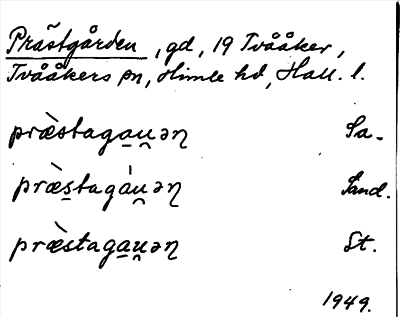 Prästgården, gd, 19 Tvååker,
Tvååkers sn, Himle hd, Hall. l.
præ̀stagau̯əɳ Sa.
præ̀stagáu̯əɳ Sand.
præ̀stagau̯əɳ St.
1949.